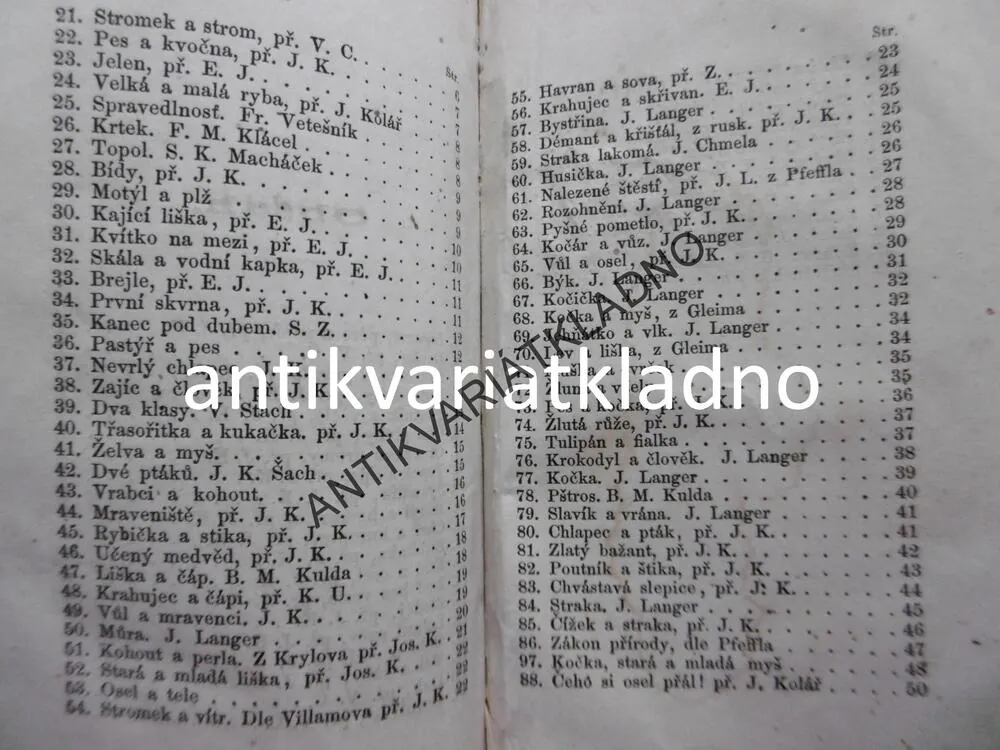 Str.
21. Stromek a strom, př. V. C. . . . . . 6
22. Pes a kvočna, př. J. K. . . . . . 7
23. Jelen, př. E. J. . . . . . 7
24. Velká a malá ryba, př. J. Kolář . 7
25. Spravedlnosť. Fr. Vetešník . . . 8
26. Krtek. F. M. Klácel . . . . . 8
27. Topol. S. K. Macháček . . . . 8
28. Bídy, př. J. K. . . . . . 9
29. Motýl a plž . . . . . 9
30. Kající liška, př. E. J. . . . . . 9
31. Kvítko na mezi, př. E. J. . . . . 10
32. Skála a vodní kapka, př. E. J. . . 10
33. Brejle, př. E. J. . . . . . 11
34. První skvrna, př. J. K. . . . . 11
35. Kanec pod dubem. S. Z. . . . . 11
36. Pastýř a pes . . . . . 12
37. Nevrlý chlapec
38. Zajíc a člověk, př. J. K.
39. Dva klasy. V. Stach
40. Třasořitka a kukačka. př. J. K. . . 14
41. Želva a myš. . . . . 15
42. Dvé ptáků. J. K. Šach . . . . 15
43. Vrabci a kohout. . . . . 16
44. Mraveniště, př. J. K. . . . . 16
45. Rybička a stika, př. J. K. . . . 17
46. Učený medvěd, př. J. K. . . . . 18
47. Liška a čáp. B. M. Kulda . . . . 18
48. Krahujec a čápi, př. K. U. . . . . 19
49. Vůl a mravenci. J. K. . . . . 19
50. Můra. J. Langer . . . . . 20
51. Kohout a perla. Z Krylova př. Jos. K. . 21
52. Stará a mladá liška, př. Jos. K. . . . 22
53. Osel a tele . . . . . 22
54. Stromek a vítr. Dle Villamova př. J. K. 22
Str.
55. Havran a sova, př. Z. . . . . . 23
56. Krahujec a skřivan. E. J. . . . . 24
57. Bystřina. J. Langer . . . . . 25
58. Démant a křišťál, z rusk. př. J. K. . . 25
59. Straka lakomá. J. Chmela . . . . 26
60. Husička. J. Langer . . . . . 26
61. Nalezené štěstí, př. J. L. z Pfeffla . . 27
62. Rozohnění. J. Langer . . . . . 28
63. Pyšné pometlo, př. J. K. . . . . 28
64. Kočár a vůz. J. Langer . . . . 29
65. Vůl a osel, př. J. K. . . . . 30
66. Býk. J. Langer . . . . . 31
67. Kočička. J. Langer . . . . . 32
68. Kočka a myš, z Gleima . . . . 32
69. Jehňátko a vlk. J. Langer . . . . 34
70. Lev a liška, z Gleima . . . . . 34
35
35
73. Pes a kočka, př. J. K. . . . . 36
74. Žlutá růže, př. J. K. . . . . 37
75. Tulipán a fialka . . . . . 37
76. Krokodyl a člověk. J. Langer . . . 38
77. Kočka. J. Langer . . . . . 39
78. Pštros. B. M. Kulda . . . . . 40
79. Slavík a vrána. J. Langer . . . . 41
80. Chlapec a pták, př. J. K. . . . . 41
81. Zlatý bažant, př. J. K. . . . . 42
82. Poutník a štika, př. J. K. . . . . 43
83. Chvástavá slepice, př. J. K. . . . 44
84. Straka. J. Langer . . . . . 45
85. Čížek a straka, př. J. K. . . . . 46
86. Zákon přírody, dle Pfeffla . . . . 47
97. Kočka, stará a mladá myš . . . . 48
88. Čeho si osel přál! př. J. Kolář . . . 50
antikvariatkladno
ANTIKVARIÁTKLADNO